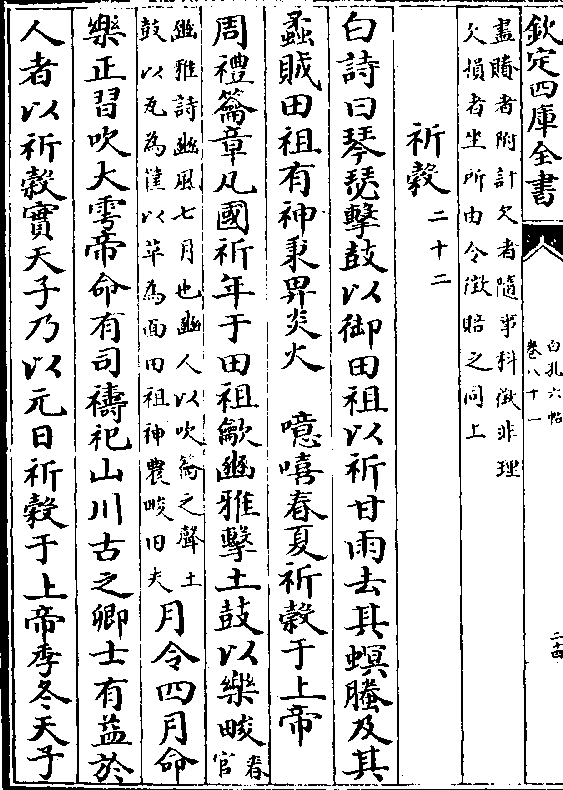 欽定四庫全書
白孔六帖
卷八十一
二十四
盡賸者附計欠者隨事科徵非理
欠損者坐所由令徵賠之同上
祈穀二十二
白詩曰琴瑟擊鼓以御田祖以祈甘雨去其螟螣及其
蟊賊田祖有神秉畀炎火 噫嘻春夏祈穀于上帝
周禮籥章凡國祈年于田祖龡豳雅擊土鼓以樂畯春官
豳雅詩豳風七月也豳人以吹籥之聲土
鼓以瓦為匡以革為面田祖神農畯田夫
月令四月命
樂正習吹大雩帝命有司禱祀山川古之卿士有益於
人者以祈穀實天子乃以元日祈穀于上帝季冬天子